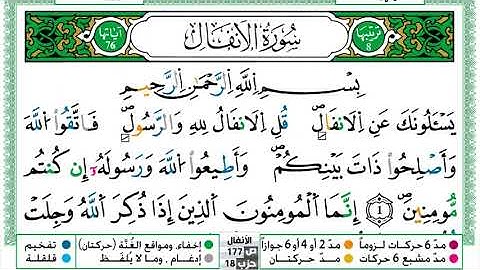 ترتيبها 8 سُورَةُ الأَنفَال آياتها 76
بِسْمِ اللَّهِ الرَّحْمَٰنِ الرَّحِيمِ
يَسْـَٔلُونَكَ عَنِ اِلَانفَالِۖ قُلِ اِلَانفَالُ لِلهِ وَالرَّسُولِۖ فَاتَّقُوا اللَّهَ
وَأَصْلِحُوا ذَاتَ بَيْنِكُمْۖ وَأَطِيعُوا اللَّهَ وَرَسُولَهُۥ إِن كُنتُم
مُّومِنِينَۖ 1 إِنَّمَا اَلْمُومِنُونَ اَلذِينَ إِذَا ذُكِرَ اَللَّهُ وَجِلَتْ
مدّ 6 حركات لزوماً مدّ 2 أو 4 أو 6 جوازاً إخفاء، ومواقع الغُنَّة (حركتان) تفخيم
مدّ مشبع 6 حركات مدّ حركتان إدغام، وما لا يُلفَظ قلقلة
الأنفال
ص 177
حزب 18